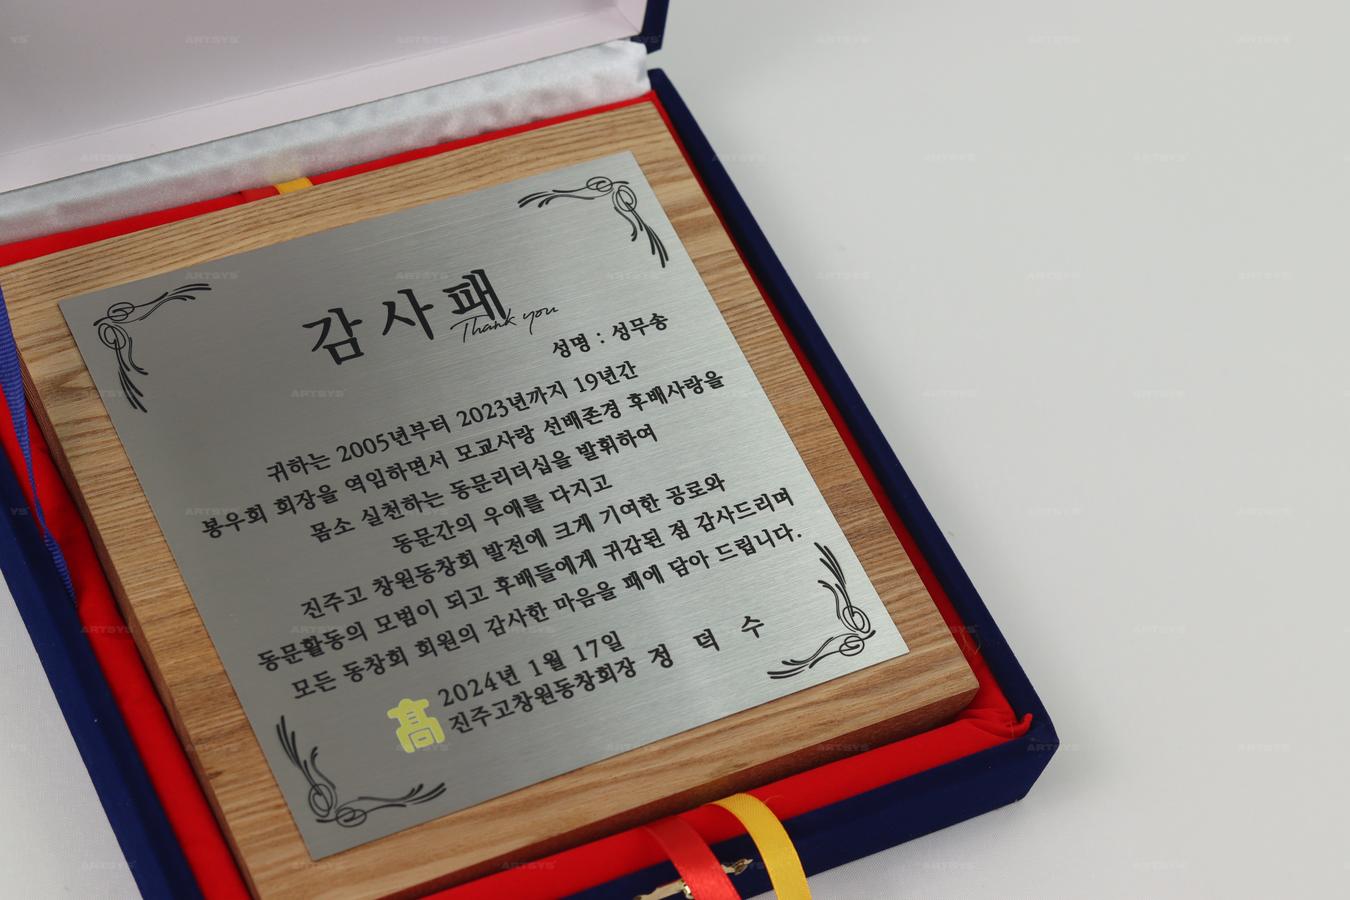 감사패
Thank you
성명 : 성무송
귀하는 2005년부터 2023년까지 19년간
봉우회 회장을 역임하면서 모교사랑 선배존경 후배사랑을
몸소 실천하는 동문리더십을 발휘하여
동문간의 우애를 다지고
진주고 창원동창회 발전에 크게 기여한 공로와
동문활동의 모범이 되고 후배들에게 귀감된 점 감사드리며
모든 동창회 회원의 감사한 마음을 패에 담아 드립니다.
2024년 1월 17일
高 진주고창원동창회장 정 덕 수
ARTSYS